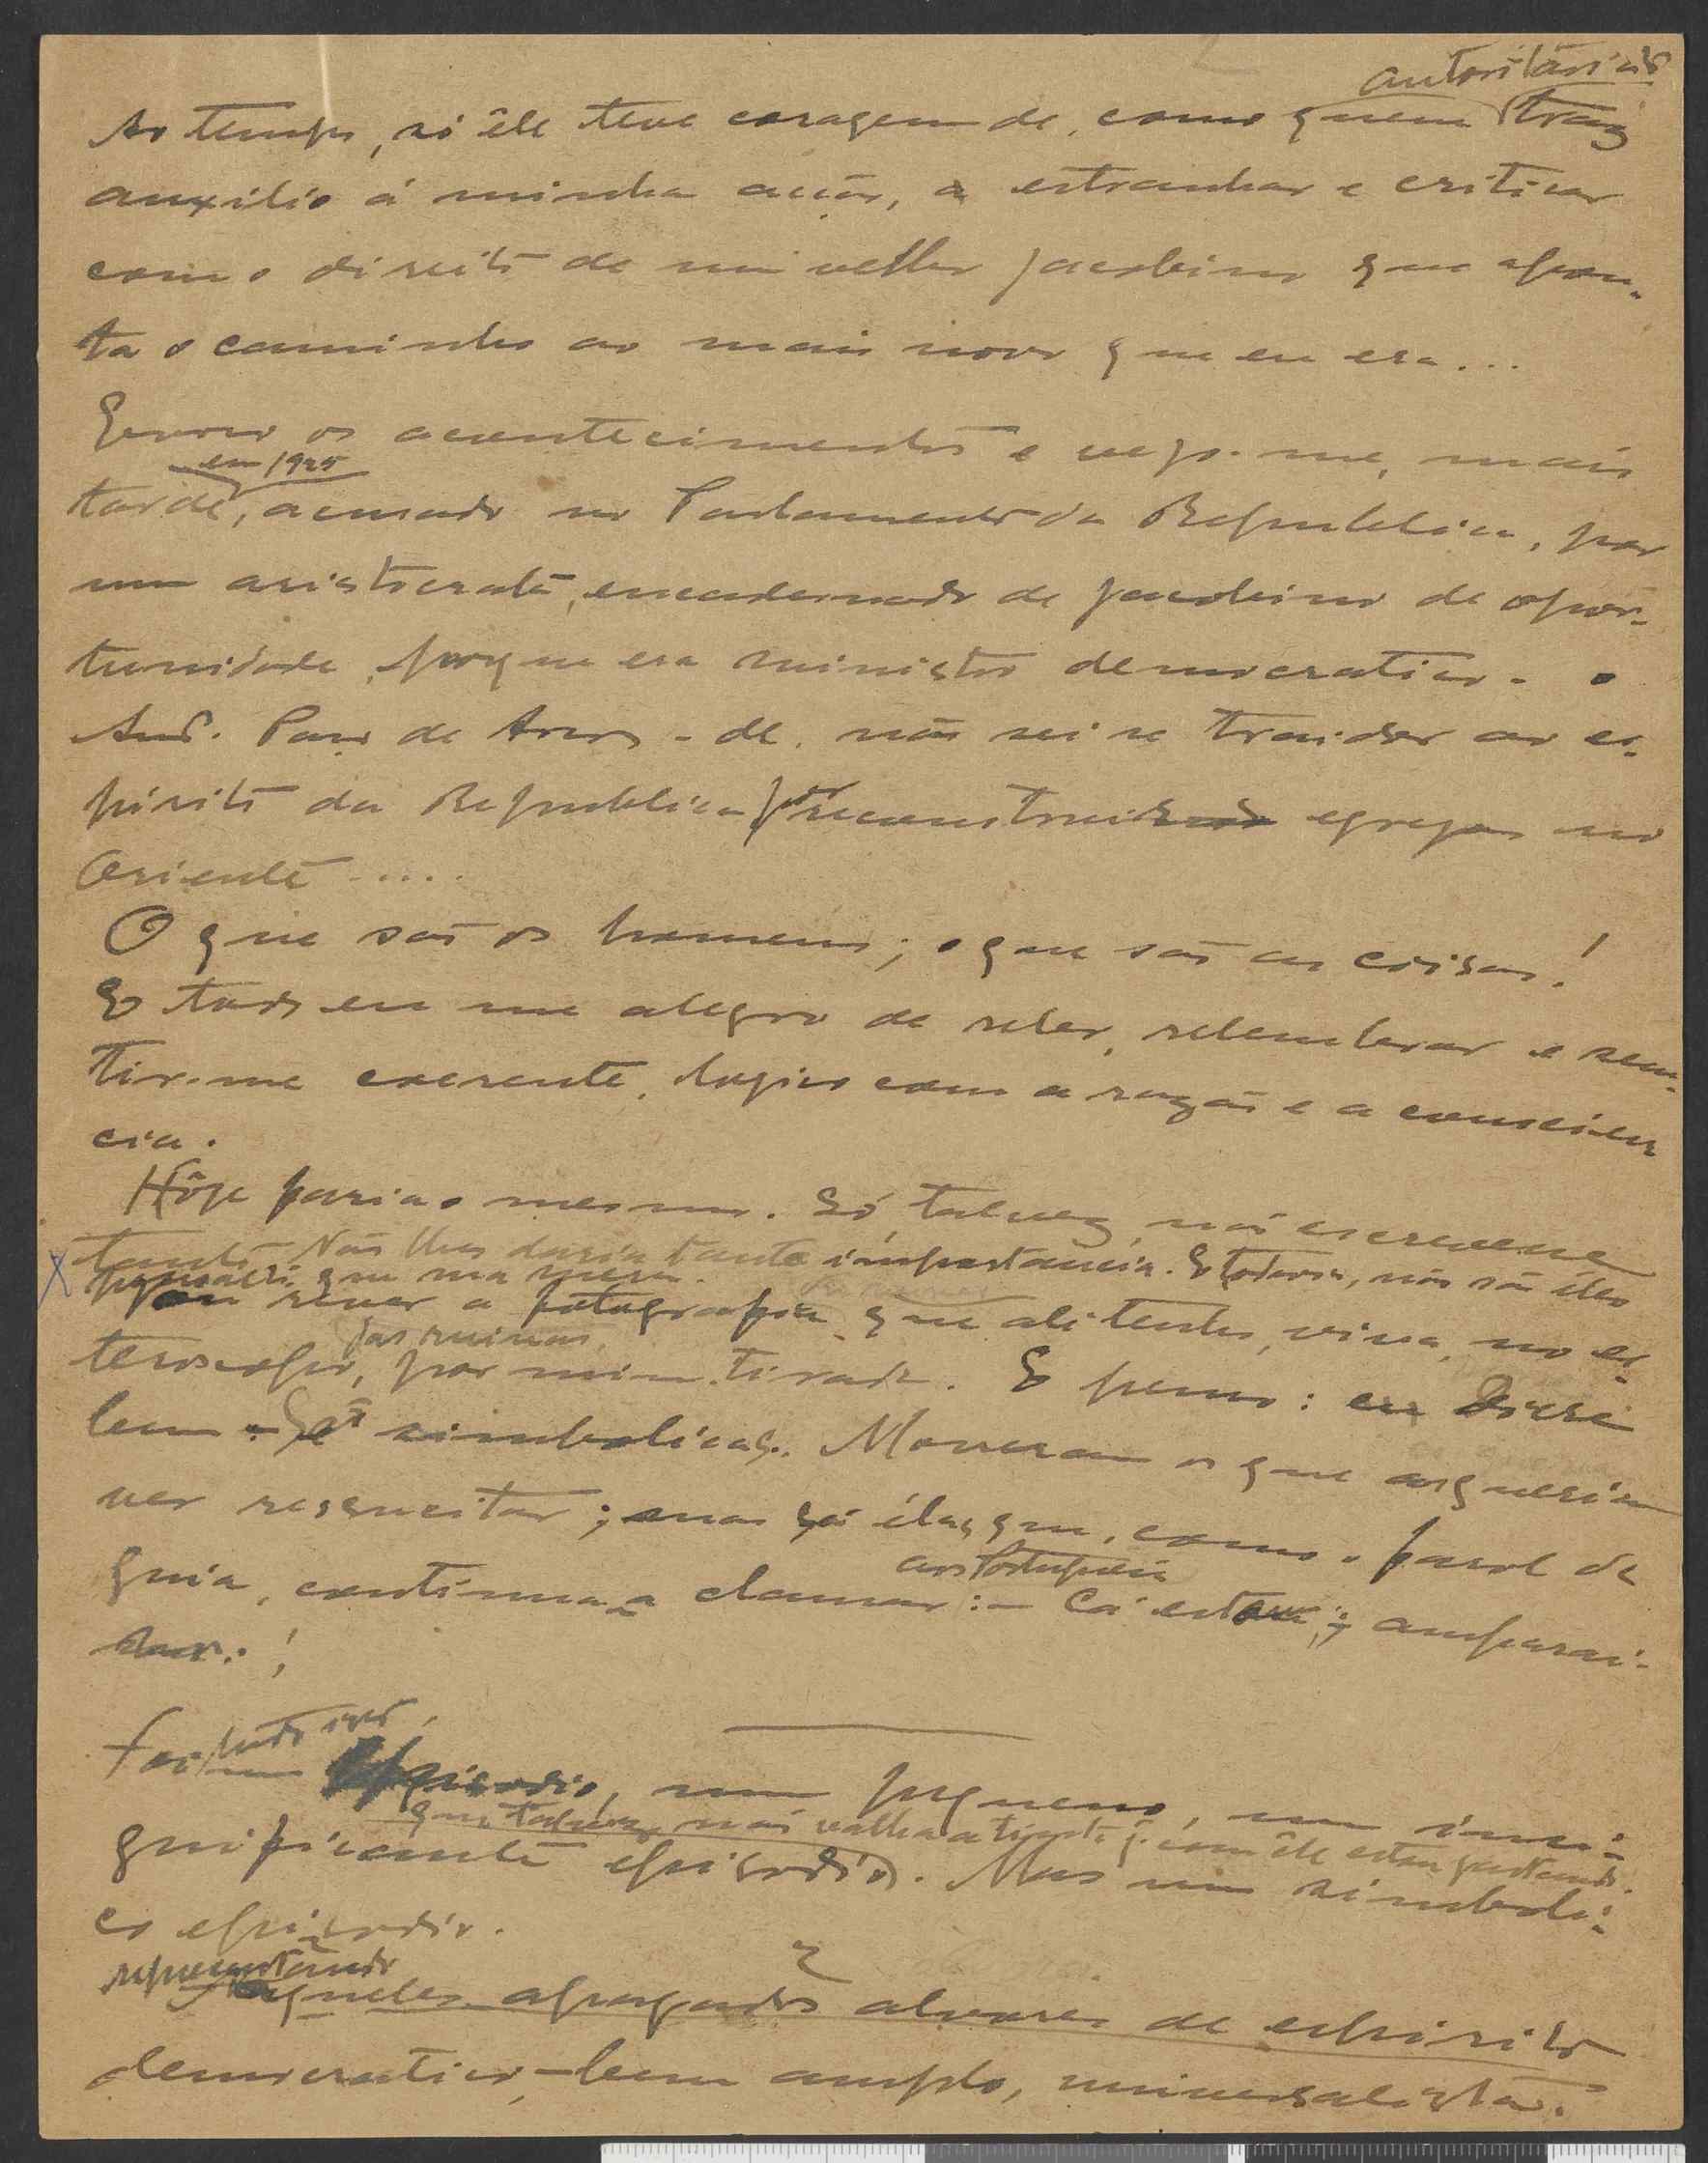 autoritário
Ao tempo, só êle teve coragem de, como quem traz
auxilio á minha acção, a estranhar e criticar
com o direito de um velho jacobino que apon-
ta o caminho ao mais novo que eu era...
Evoco os acontecimentos e vejo-me, mais
em 1925
tarde, acusado no Parlamento da Republica, por
um aristocrata, encadernado de jacobino de opor-
tunidade, porque era ministro democratico - o
Snr. Pais de - de, não sei se traidor ao es-
pirito da Republica por reconstruir egrejas no
Oriente.....
O que são os homens; o que são as coisas!
E todo eu me alegro de reler, relembrar e sen-
tir-me coerente, logico com a razão e a conscien
cia.
Hôje faria o mesmo. Só, talvez, não escrevesse
tanto. Não lhes daria tanta importancia. E todavia, não são eles
que
rever a fotografia que ali tenho, viva, no es-
das ruinas,
tereoscopio, por mim tirada. E penso: Dizei
bem - simbolicas. Morreram os que as queriam
ver resuscitar; mas só elas que, como o farol de
aos Portugueses
guia, continua a clamar: - Cá estou; amparai-
nos!
Foi tudo isto,
um episodio, um pequeno, um insi-
que talvez não valha a tinta q. com êle estou gastando.
gnificante episodio. Mas um simboli-
co episodio.
representando
aqueles apagados alvores de espirito
democratico, - bem amplo, universalista.